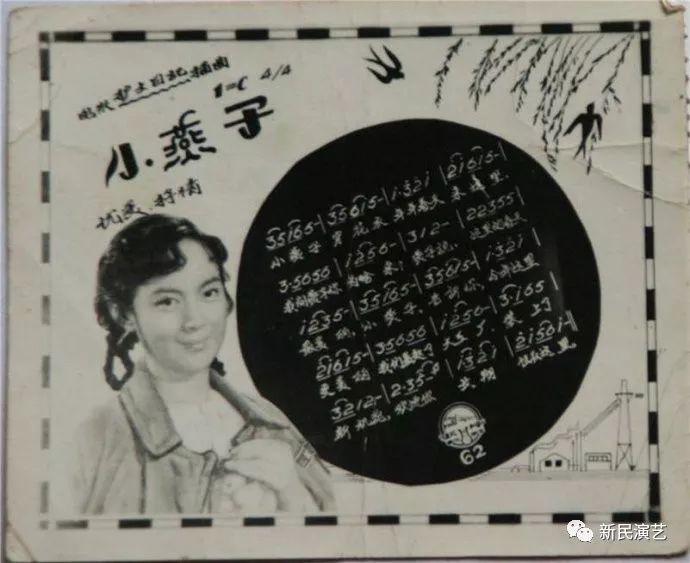 电影 护士日记 插曲
1=C 4/4
小燕子
优美 抒情
35i65-|356i5-|i·32i|2i6i5-|
小燕子 穿花衣 年年春天 来这里.
3·5656|i256-|312-|22355|
我问燕子你 为啥来? 燕子说, 这里的春天
i235-|35i65-|356i5-|i·32i|
最美丽, 小燕子, 告诉你, 今年这里
2i6i5-|35656|i256-|3i65|
更美丽 我们盖起了 大工厂, 装上了
3212-|2·355-0|i32i|2i56i-|
新机器, 欢迎你 长期 住在这里.
62
新民演艺